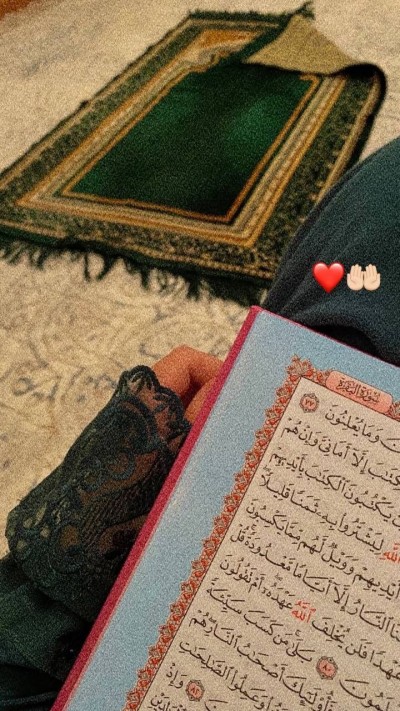 سُورَةُ البَقَرَةِ
وَمَا يُعْلِنُونَ ٧٧
إِلَّآ أَمَانِىَّ وَإِنْ هُمْ
يَكْتُبُونَ ٱلْكِتَٰبَ بِأَيْدِيهِمْ
ٱللَّهِ لِيَشْتَرُوا۟ بِهِۦ ثَمَنًا قَلِيلًا
أَيْدِيهِمْ وَوَيْلٌ لَّهُم مِّمَّا يَكْسِبُونَ
ٱلنَّارُ إِلَّآ أَيَّامًا مَّعْدُودَةً قُلْ
عَهْدًا فَلَن يُخْلِفَ ٱللَّهُ عَهْدَهُۥٓ أَمْ تَقُولُونَ
٨٠ بَلَىٰ مَن كَسَبَ سَيِّئَةً
فَأُو۟لَٰٓئِكَ أَصْحَٰبُ ٱلنَّارِ هُمْ
وَعَمِلُوا۟ ٱلصَّٰلِحَٰتِ
٨٢ وَإِذْ